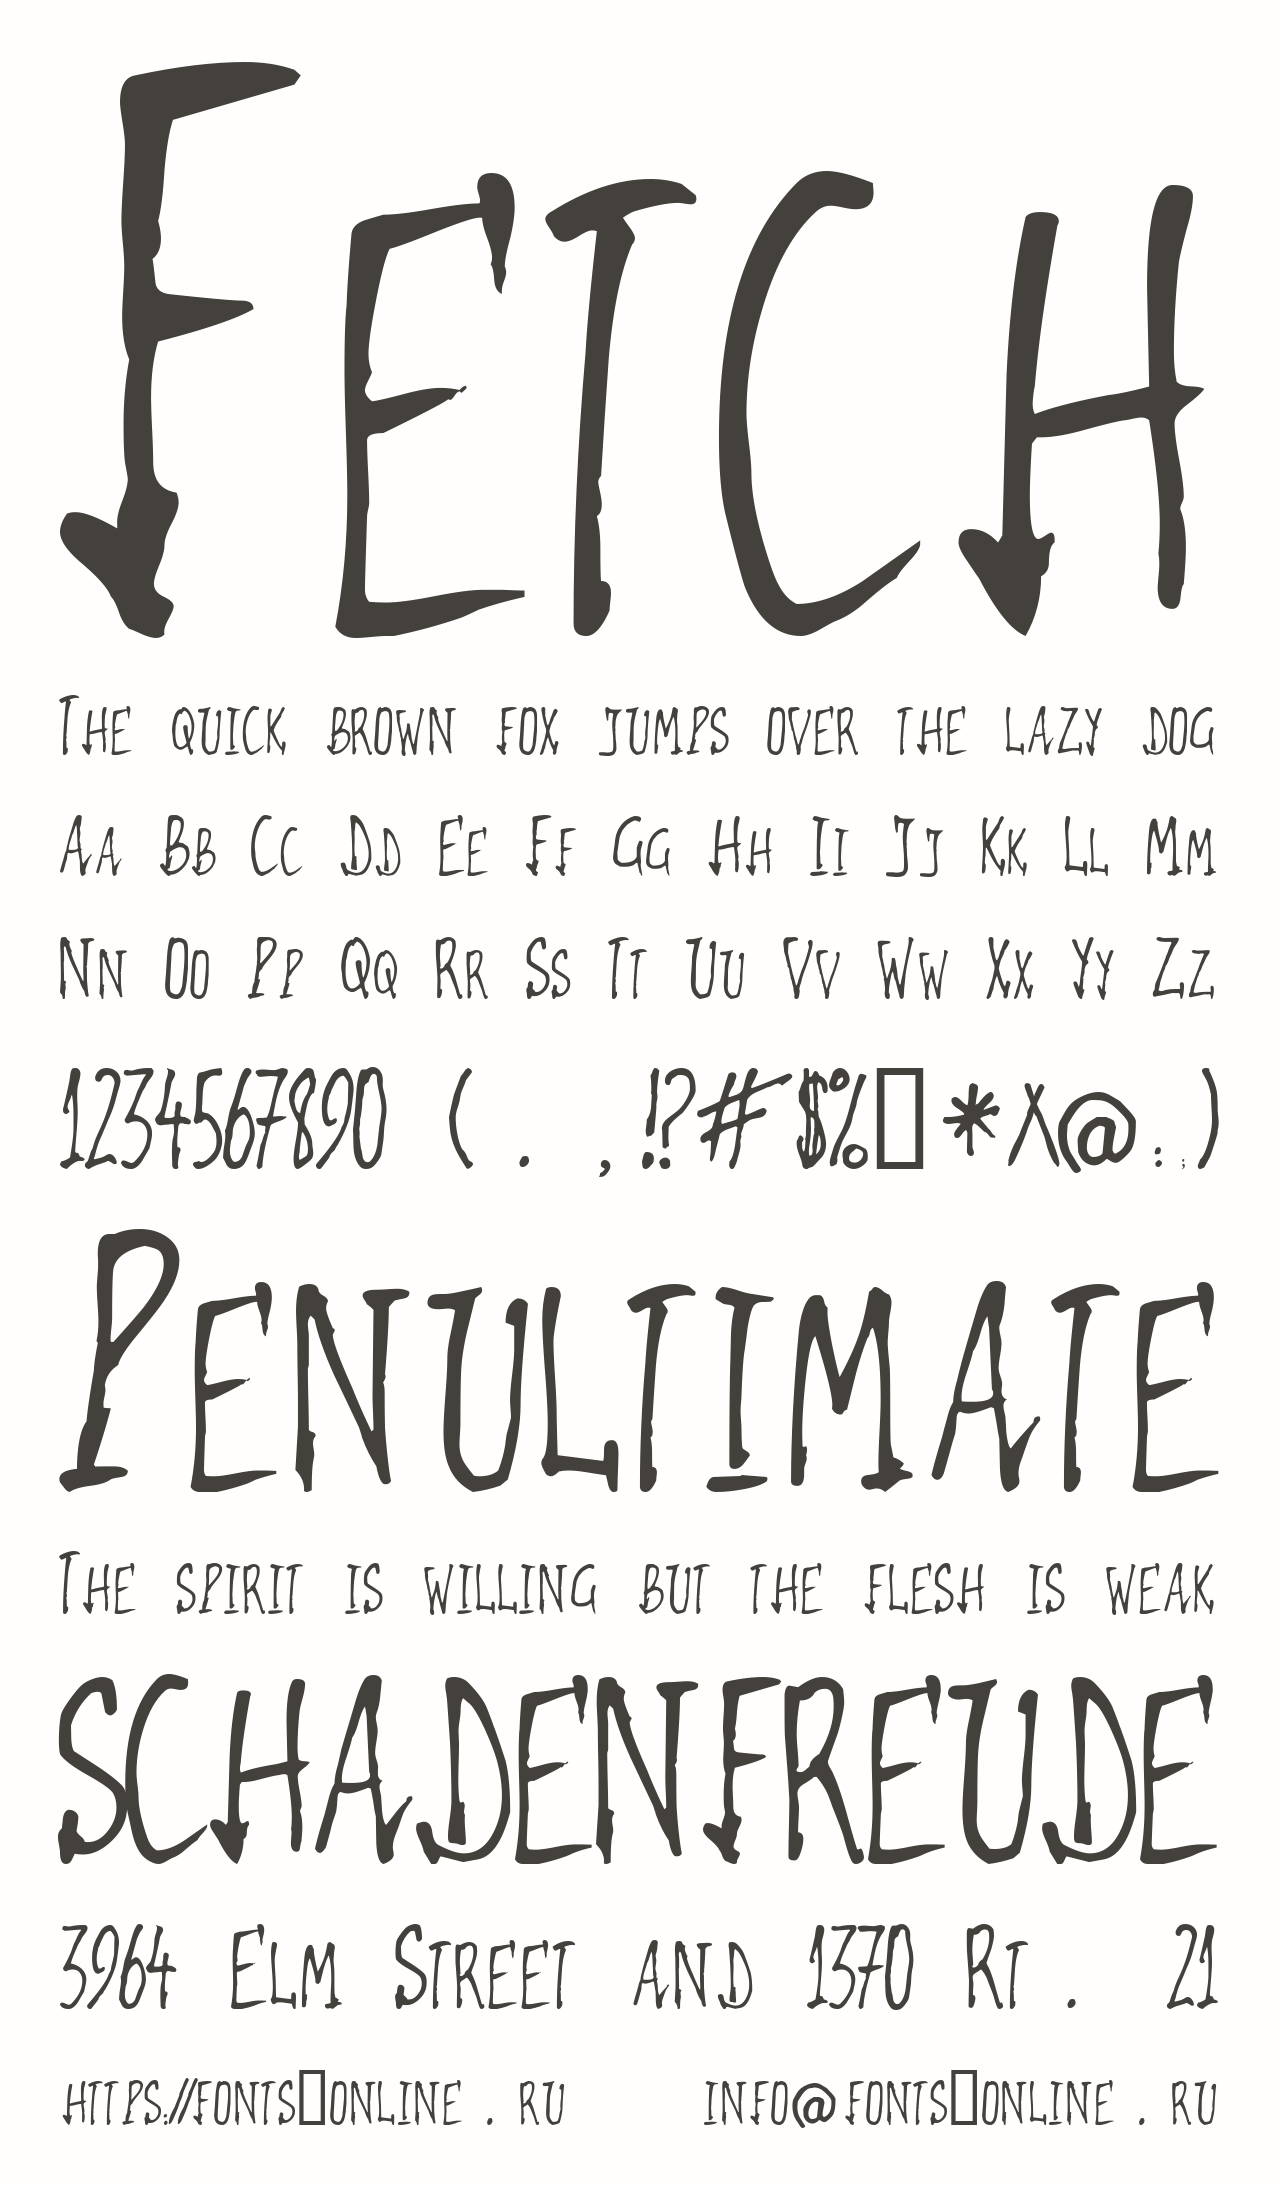 Fetch
The quick brown fox jumps over the lazy dog
Aa Bb Cc Dd Ee Ff Gg Hh Ii Jj Kk Ll Mm
Nn Oo Pp Qq Rr Ss Tt Uu Vv Ww Xx Yy Zz
1234567890 ( . , !?#$%□*^@:;)
Penultimate
The spirit is willing but the flesh is weak
SCHADENFREUDE
3964 Elm Street and 1370 Rt . 21
https://fonts□online . ru info@fonts□online . ru